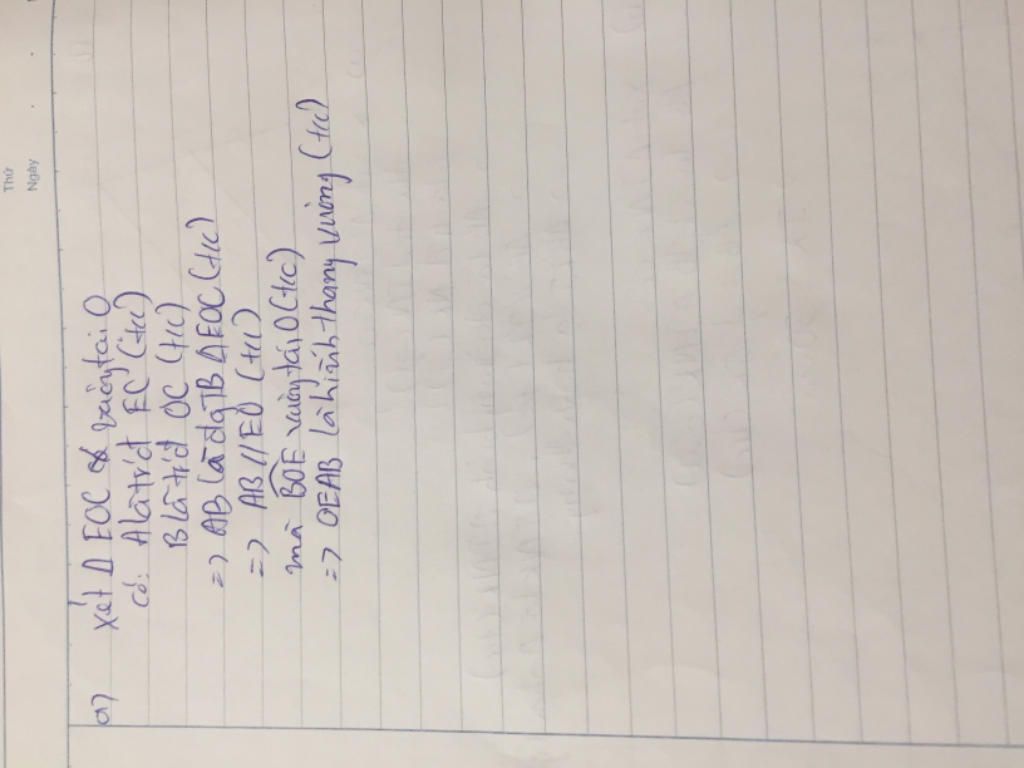 Thứ
Ngày
a) Xét Δ EOC vuông tại O
có: A là trđ EC (tc)
B là trđ OC (tc)
=> AB là đg TB Δ EOC (tc)
=> AB // EO (tc)
mà BOE vuông tại O (tc)
=> OEAB là hình thang vuông (tc)